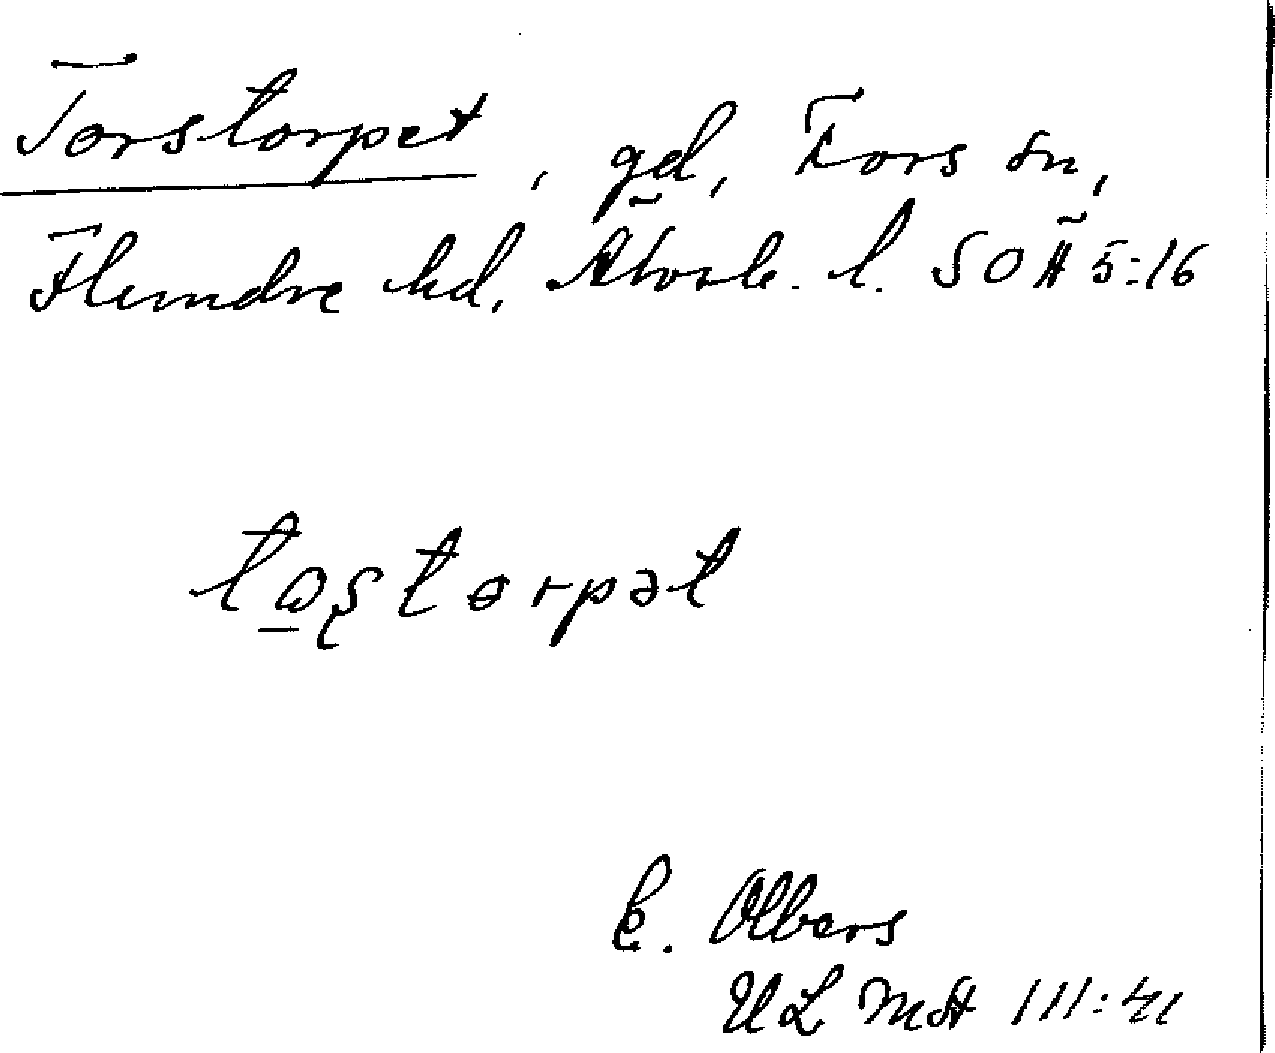 Torstorpet, gd, Fors sn,
Flundre hd, Älvsb. l. SOÄ 5:16
tas̨torpət
E. Olbers
UL Mdt III:41